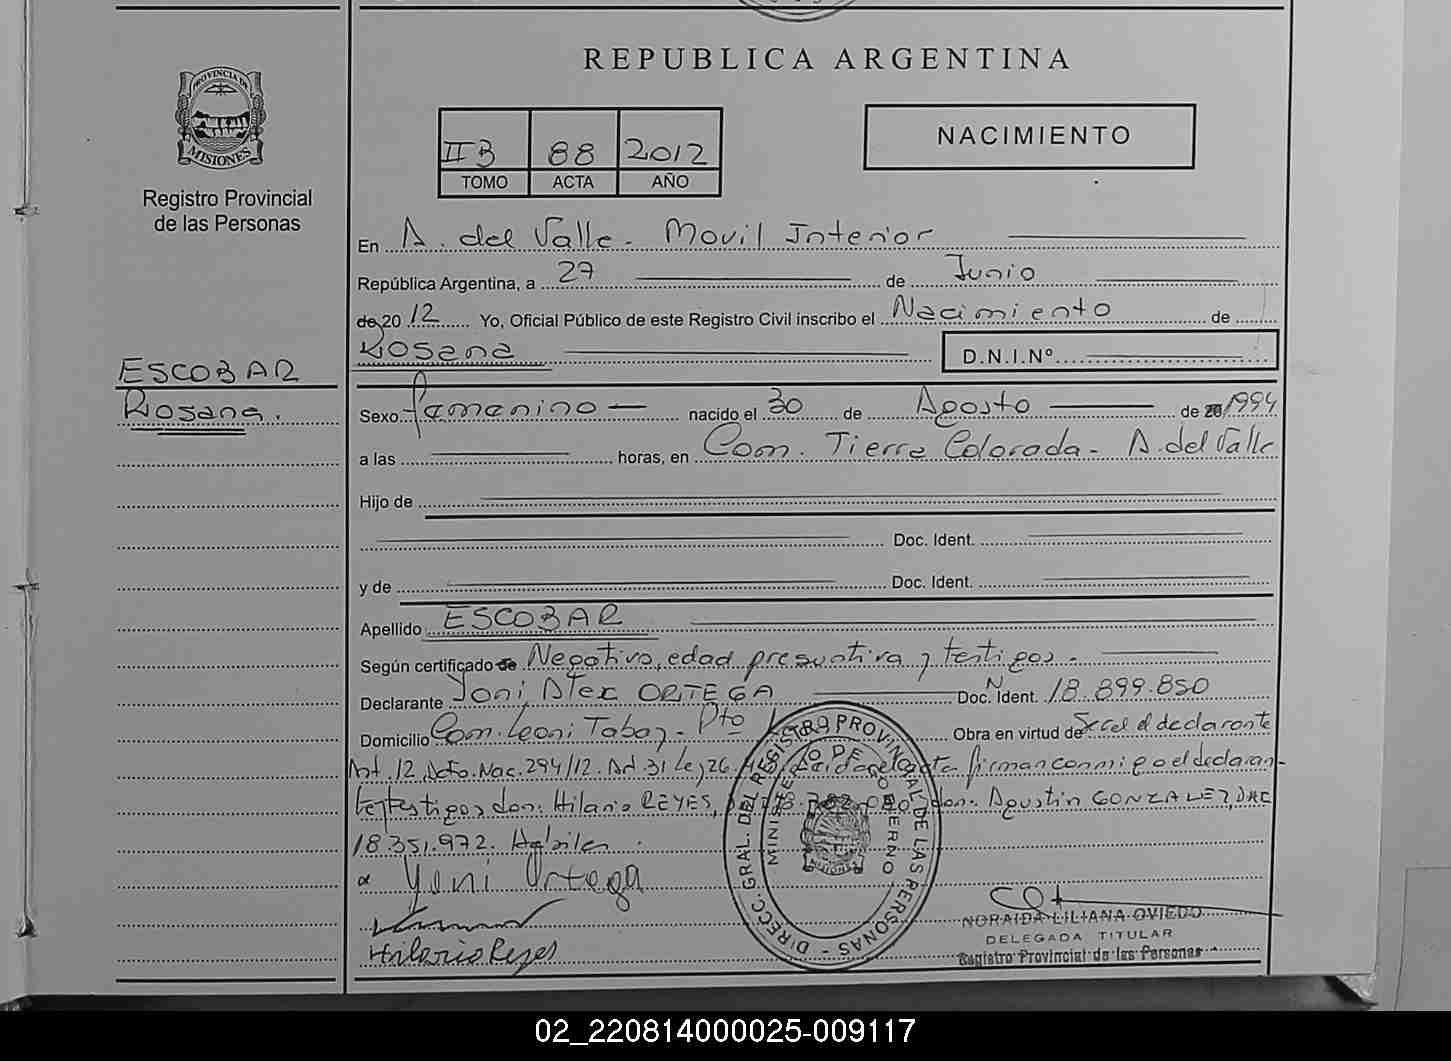 REPUBLICA ARGENTINA
PROVINCIA DE
MISIONES
Registro Provincial
de las Personas
NACIMIENTO
IIB 88 2012
TOMO ACTA AÑO
En A. del Valle - Movil Interior
República Argentina, a 27 de Junio
de 20 12 Yo, Oficial Público de este Registro Civil inscribo el Nacimiento de
Rosana D.N.I.Nº
ESCOBAR
Rosana.
Sexo femenino nacido el 30 de Agosto de 20 1994
a las horas, en Com. Tierra Colorada - A. del Valle
Hijo de
Doc. Ident.
y de Doc. Ident.
Apellido ESCOBAR
Según certificado de Negativo, edad presuntiva y testigos.
Declarante Yoni Alex ORTEGA Doc. Ident. 18.899.850
Domicilio Com. Leoni Tabay - Pto Obra en virtud de el declarante
Art. 12 Dcto. Nac. 294/12. Art. 31 Ley 26. firman conmigo el declaran-
te testigos don: Hilario REYES, don: Agustin GONZALEZ,
18.351.972.
Yoni Ortega
Hilario Reyes
DIRECC. GRAL. DEL REGISTRO PROVINCIAL DE LAS PERSONAS -
MINISTERIO DE GOBIERNO
MISIONES
NORAIDA LILIANA OVIEDO
DELEGADA TITULAR
Registro Provincial de las Personas
02_220814000025-009117